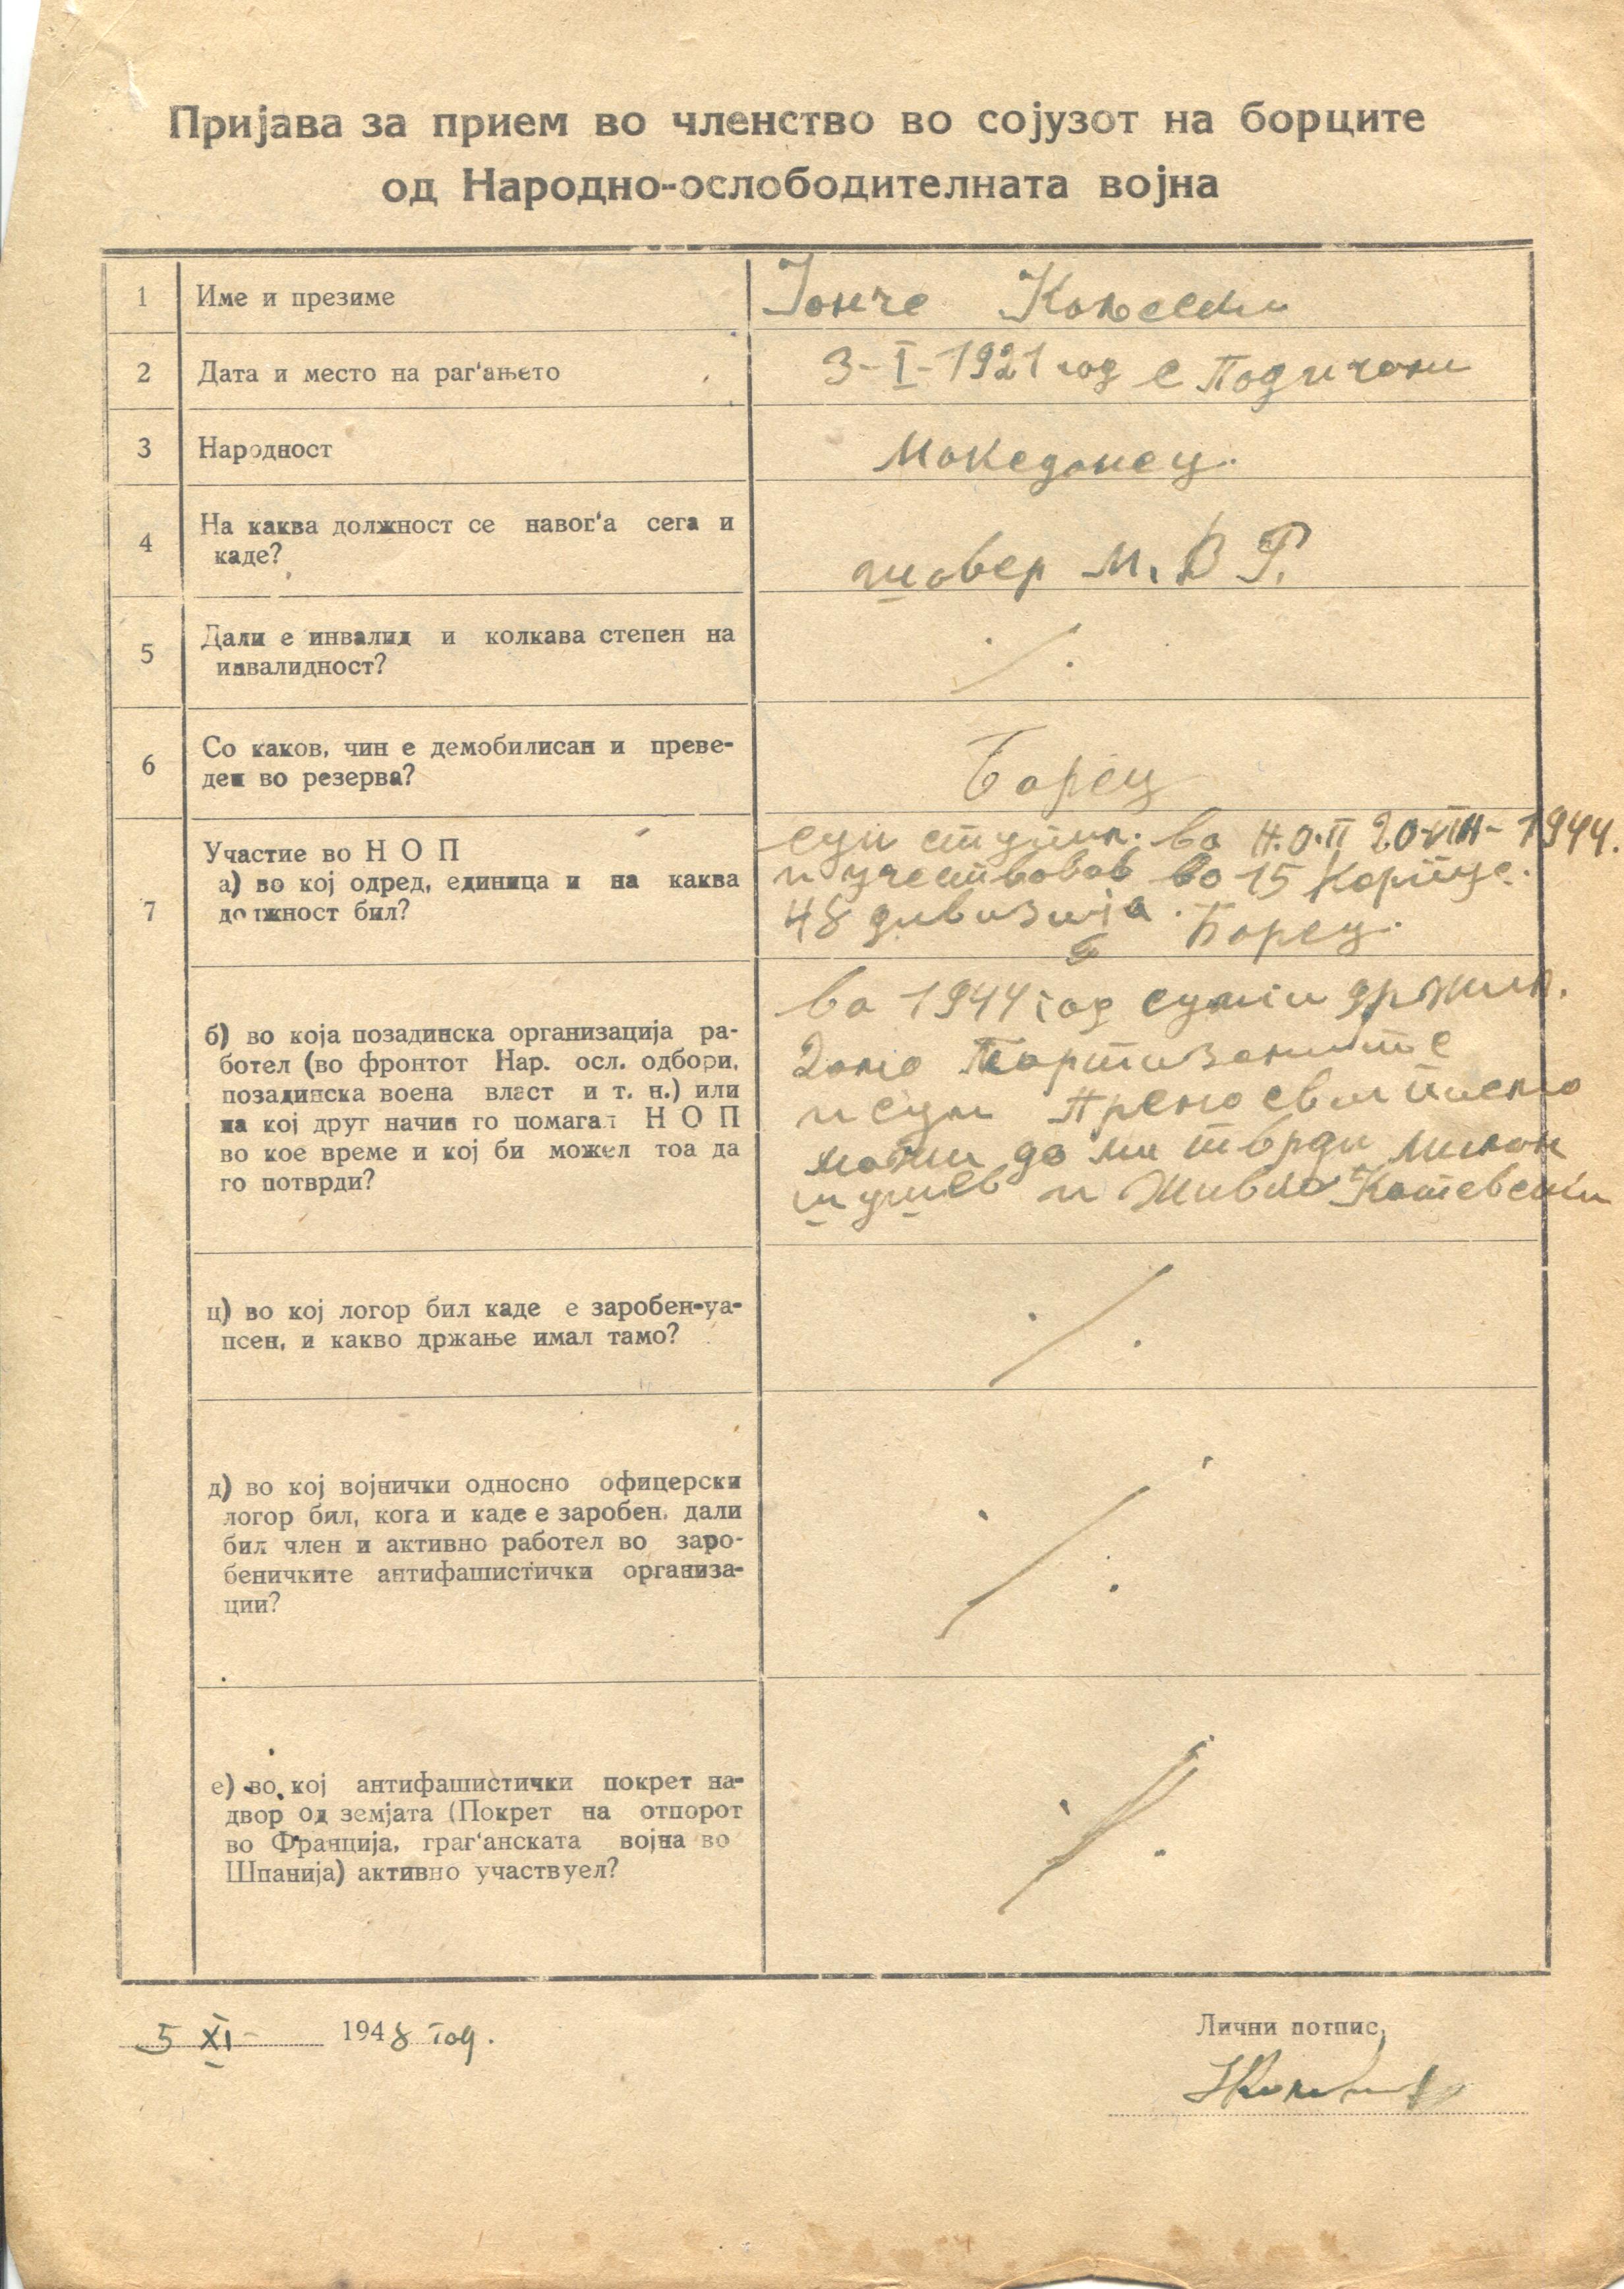 Пријава за прием во членство во сојузот на борците
од Народно-ослободителната војна
1
Име и презиме
Јонче
2
Дата и место на раг'ањето
3-I-1921 год с Подичани
3
Народност
Македонец.
4
На каква должност се навог'а сега и
каде?
шовер М. В Р.
5
Дали е инвалид и колкава степен на
инвалидност?
6
Со каков, чин е демобилисан и преве-
ден во резерва?
Борец
7
Участие во Н О П
а) во кој одред, единица и на каква
должност бил?
сум ступил. во Н.О.П 20-VIII-1944.
и учествовав во 15 Корпус.
48 дивизија. Борец.
б) во која позадинска организација ра-
ботел (во фронтот Нар. осл. одбори,
позадинска воена власт и т. н.) или
на кој друг начин го помагал Н О П
во кое време и кој би можел тоа да
го потврди?
во 1944 год сум
Партизаните
и сум
да ми тврди
и Живко Котевски
ц) во кој логор бил каде е заробен-уа-
псен, и какво држање имал тамо?
д) во кој војнички односно офицерски
логор бил, кога и каде е заробен, дали
бил член и активно работел во заро-
беничките антифашистички организа-
ции?
е) во кој антифашистички покрет на-
двор од земјата (Покрет на отпорот
во Франција, граг'анската војна во
Шпанија) активно участвуел?
5 XI- 1948 год.
Лични потпис,